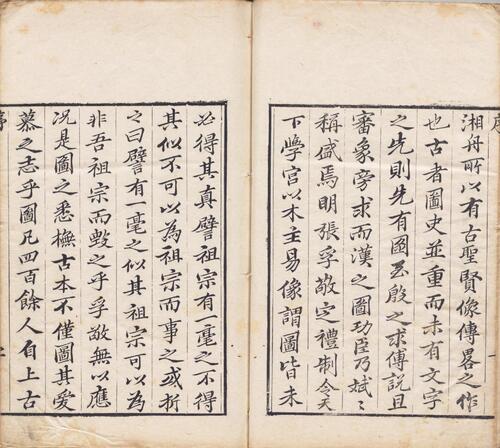 湘舟所以有古聖賢像傳畧之作
也古者圖史並重而未有文字
之先則先有圖至殷之求傅說且
審象旁求而漢之圖功臣乃斌〻
稱盛焉明張孚敬定禮制令天
下學宫以木主易像謂圖皆未
必得其真譬祖宗有一毫之不得
其似不可以為祖宗而事之或折
之曰譬有一毫之似其祖宗可以為
非吾祖宗而毀之乎孚敬無以應
况是圖之悉橅古本不僅圖其爱
慕之志乎圖凡四百餘人自上古
序